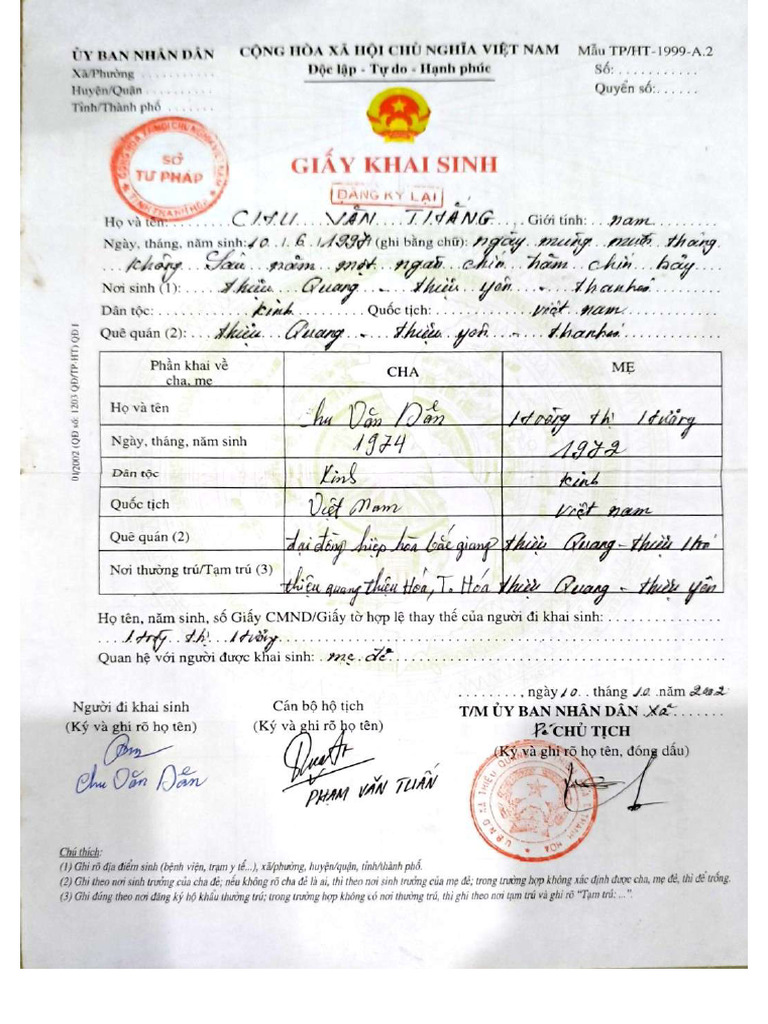 ỦY BAN NHÂN DÂN
Xã/Phường . . . . . . . . . . .
Huyện/Quận . . . . . . . . . .
Tỉnh/Thành phố . . . . . . .
CỘNG HÒA XÃ HỘI CHỦ NGHĨA VIỆT NAM
Độc lập - Tự do - Hạnh phúc
Mẫu TP/HT-1999-A.2
Số: . . . . . . . . . . .
Quyển số: . . . . . .
SỞ
TƯ PHÁP
GIẤY KHAI SINH
ĐĂNG KÝ LẠI
Họ và tên: CHU VĂN THẮNG Giới tính: nam
Ngày, tháng, năm sinh: 10 / 6 / 1997 (ghi bằng chữ): ngày mùng mười tháng
không Sáu năm một ngàn chín trăm chín bảy
Nơi sinh (1): thiệu Quang - thiệu yên - thanh hoá
Dân tộc: kinh Quốc tịch: việt nam
Quê quán (2): thiệu Quang - thiệu yên - thanh hoá
01/2002 (QĐ số: 1203 QĐ/TP-HT) QĐ I
Phần khai về cha, mẹ CHA MẸ
Họ và tên Chu Văn Dần thị
Ngày, tháng, năm sinh 1974 1972
Dân tộc Kinh kinh
Quốc tịch Việt Nam việt nam
Quê quán (2) đại đồng hiệp hòa bắc giang thiệu Quang - thiệu
Nơi thường trú/Tạm trú (3) thiệu quang thiệu Hóa, T. Hóa thiệu Quang - thiệu yên
Họ tên, năm sinh, số Giấy CMND/Giấy tờ hợp lệ thay thế của người đi khai sinh:
thị
Quan hệ với người được khai sinh: mẹ đẻ
. . . . . . . . , ngày 10 tháng 10 năm 2002
Người đi khai sinh
(Ký và ghi rõ họ tên)
Chu Văn Dần
Cán bộ hộ tịch
(Ký và ghi rõ họ tên)
PHẠM VĂN TUẤN
T/M ỦY BAN NHÂN DÂN xã
CHỦ TỊCH
(Ký và ghi rõ họ tên, đóng dấu)
U.B.N.D XÃ THIỆU QUANG
Chú thích:
(1) Ghi rõ địa điểm sinh (bệnh viện, trạm y tế...), xã/phường, huyện/quận, tỉnh/thành phố.
(2) Ghi theo nơi sinh trưởng của cha đẻ; nếu không rõ cha đẻ là ai, thì theo nơi sinh trưởng của mẹ đẻ; trong trường hợp không xác định được cha, mẹ đẻ, thì để trống.
(3) Ghi đúng theo nơi đăng ký hộ khẩu thường trú; trong trường hợp không có nơi thường trú, thì ghi theo nơi tạm trú và ghi rõ "Tạm trú: ...".